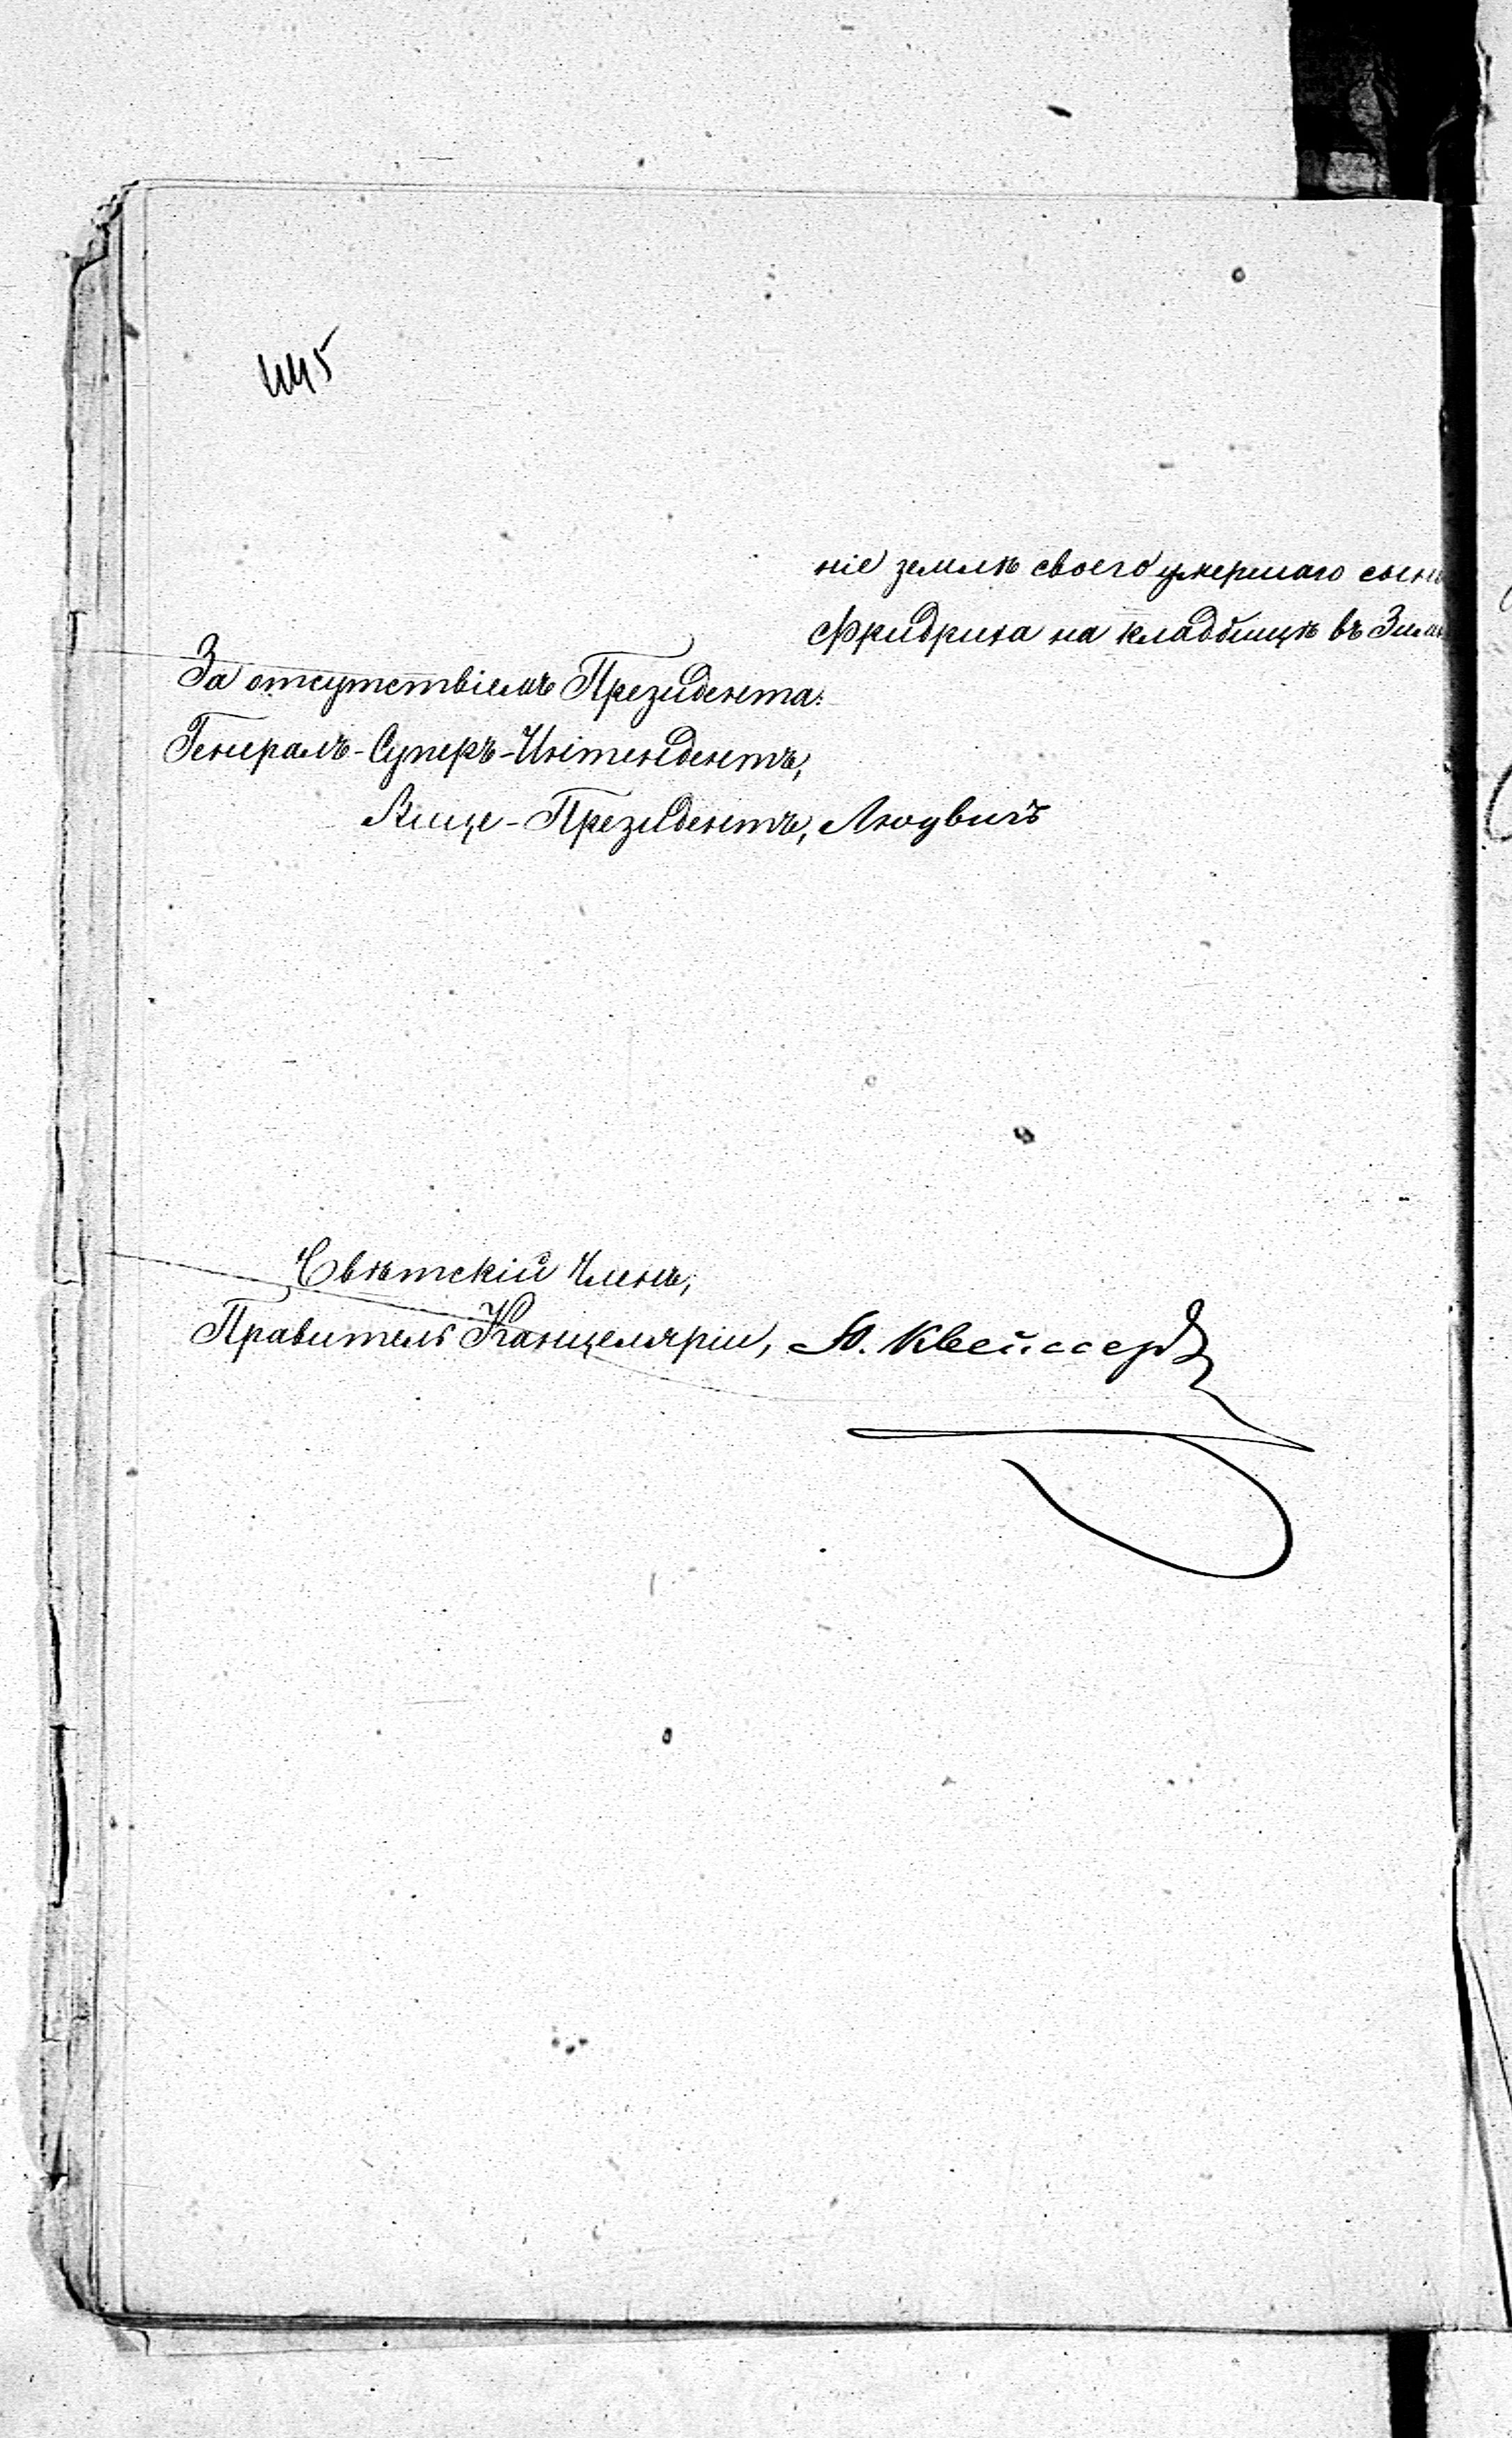 445
ніе землѣ своего умершаго сына
Фридриха на кладбищѣ въ
За отсутствіемъ Президента:
Генералъ-Суперъ-Интендентъ,
Вице-Президентъ, Людвигъ
Свѣтскій Членъ,
Правитель Канцеляріи, Ю. Квейссеръ